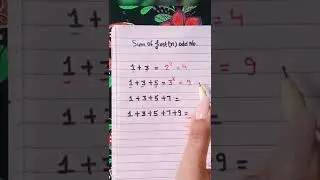 Sum of first(n) odd No.
1 + 3 = 2² = 4
1 + 3 + 5 = 3² = 9
1 + 3 + 5 + 7 =
1 + 3 + 5 + 7 + 9 =